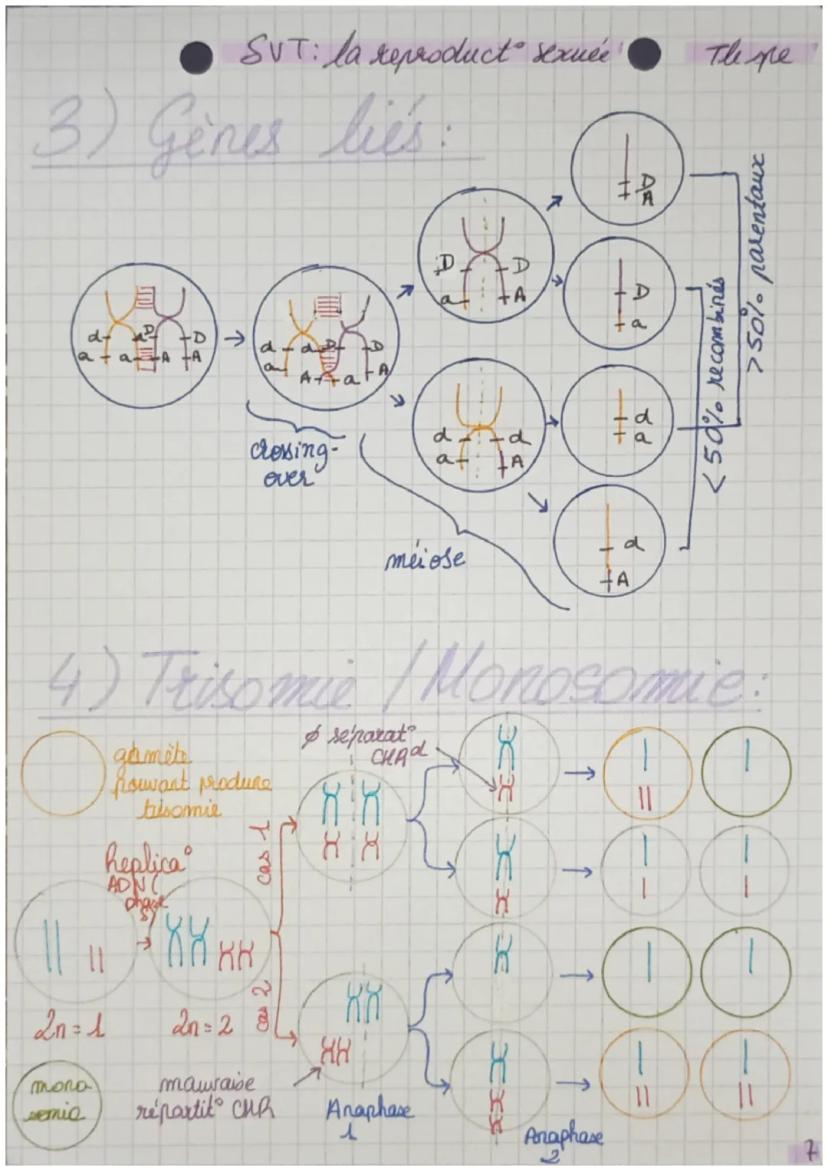 SVT: la reproduct° sexuée Tle spe
3) Gènes liés:
D
A
D D
a A
D
a
d d D D
a a A A
d d D D
a A a A
d d
a A
d
a
d
A
crossing-
over
méiose
< 50% recombinés
> 50% parentaux
4) Trisomie / Monosomie:
gamète
pouvant produire
trisomie
∅ séparat°
CHR d
Replica°
ADN (
phase
S)
cas 1
cas 2
2n = 1
2n = 2
mono
somie
mauvaise
répartit° CHR
Anaphase
1
Anaphase
2
7